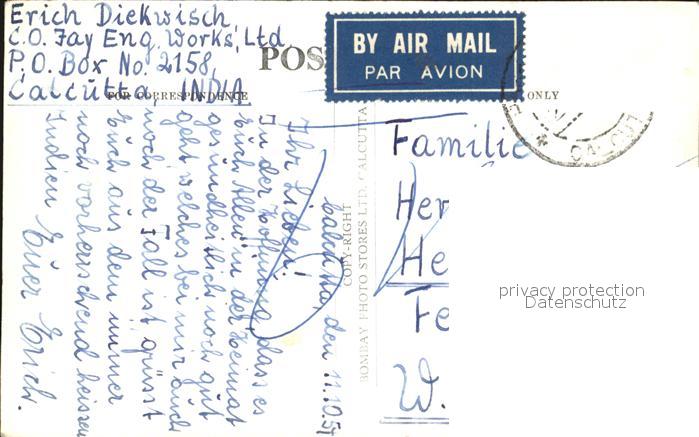 Erich Diekwisch,
C.O. Jay Eng. Works, Ltd.
P.O. Box No. 2158,
Calcutta INDIA.
POS
FOR CORRESPONDENCE
ONLY
BY AIR MAIL
PAR AVION
CALCU
Calcutta, den 11.10.57
Ihr Lieben!
In der Hoffnung, dass es
Euch Allen in der Heimat
gesundheitlich noch gut
geht welches bei mir auch
noch der Fall ist grüsst
Euch aus dem immer
noch vorherrschend heissen
Indien Euer Erich.
COPY-RIGHT
BOMBAY PHOTO STORES LTD. CALCUTTA
Familie
Her
He
Fe
W.
privacy protection
Datenschutz